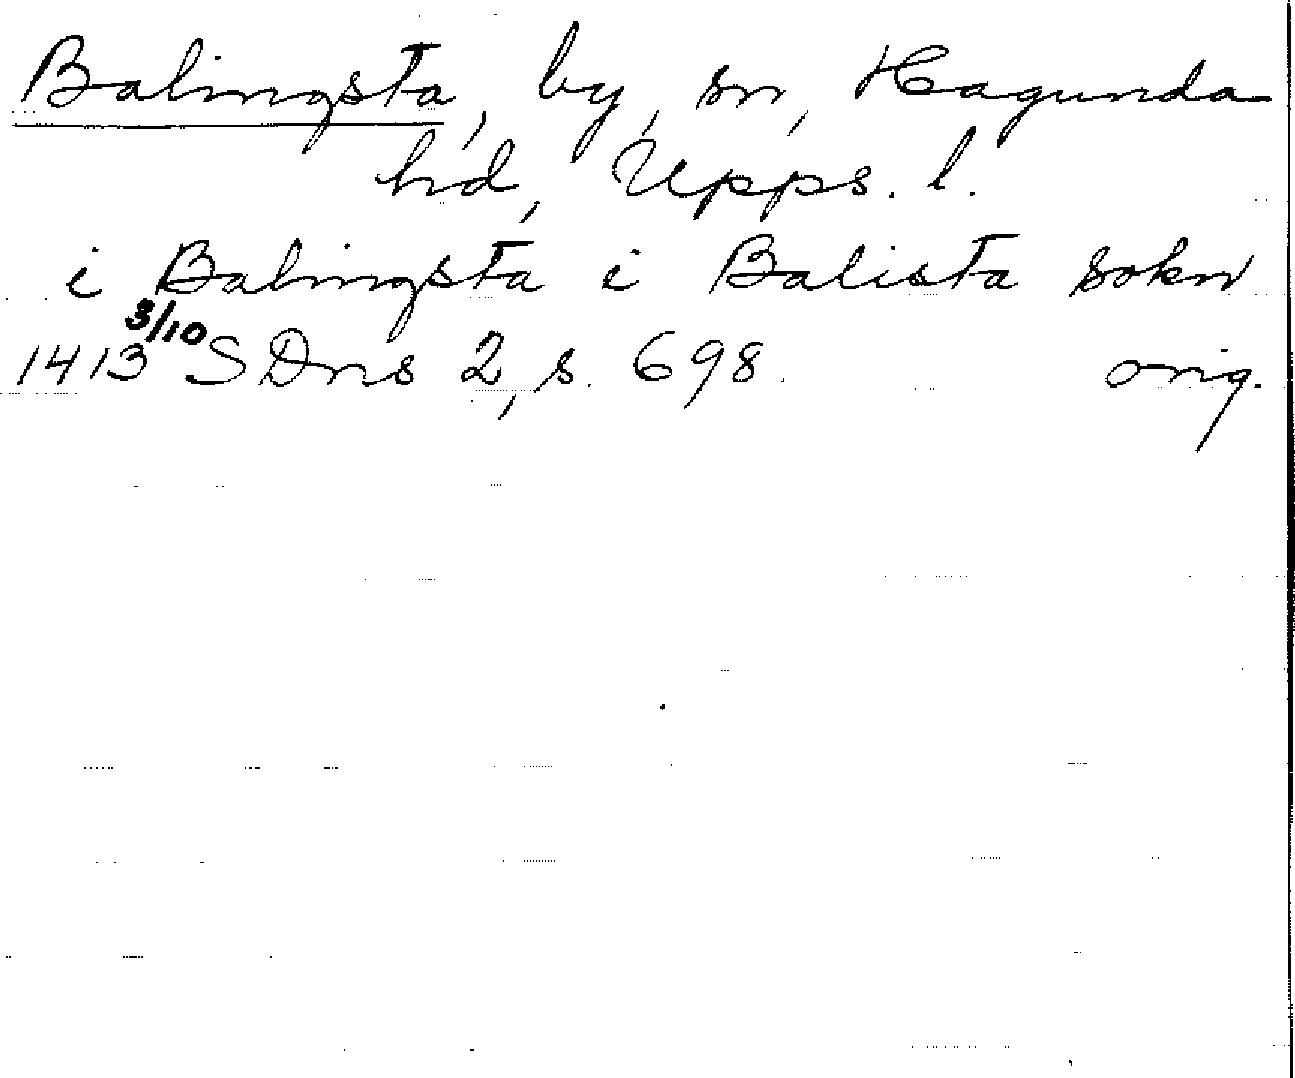 Balingsta, by, sn, Hagunda
hd, Upps. l.
i Balingsta i Balista sokn
1413 3/10 SDns 2, s. 698. orig.